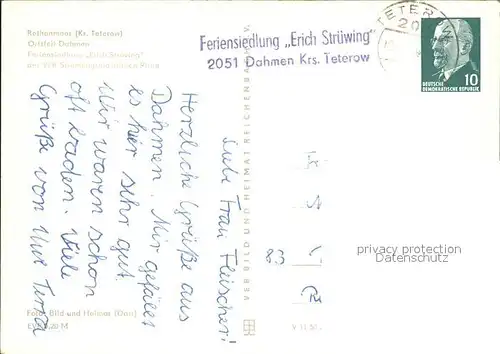 Rothenmoos (Kr. Teterow)
Ortsteil Dahmen
Feriensiedlung „Erich Strüwing"
Feriensiedlung „Erich Strüwing"
2051 Dahmen Krs. Teterow
TETEROW
20
DEUTSCHE
DEMOKRATISCHE REPUBLIK
10
Liebe Frau Fleischer!
Herzliche Grüße aus
Dahmen. Mir gefällt
es hier sehr gut.
Wir waren schon
oft baden. Viele
Grüße von
VEB BILD UND HEIMAT REICHENBACH i. V.
83
privacy protection
Datenschutz
Foto: Bild und Heimat